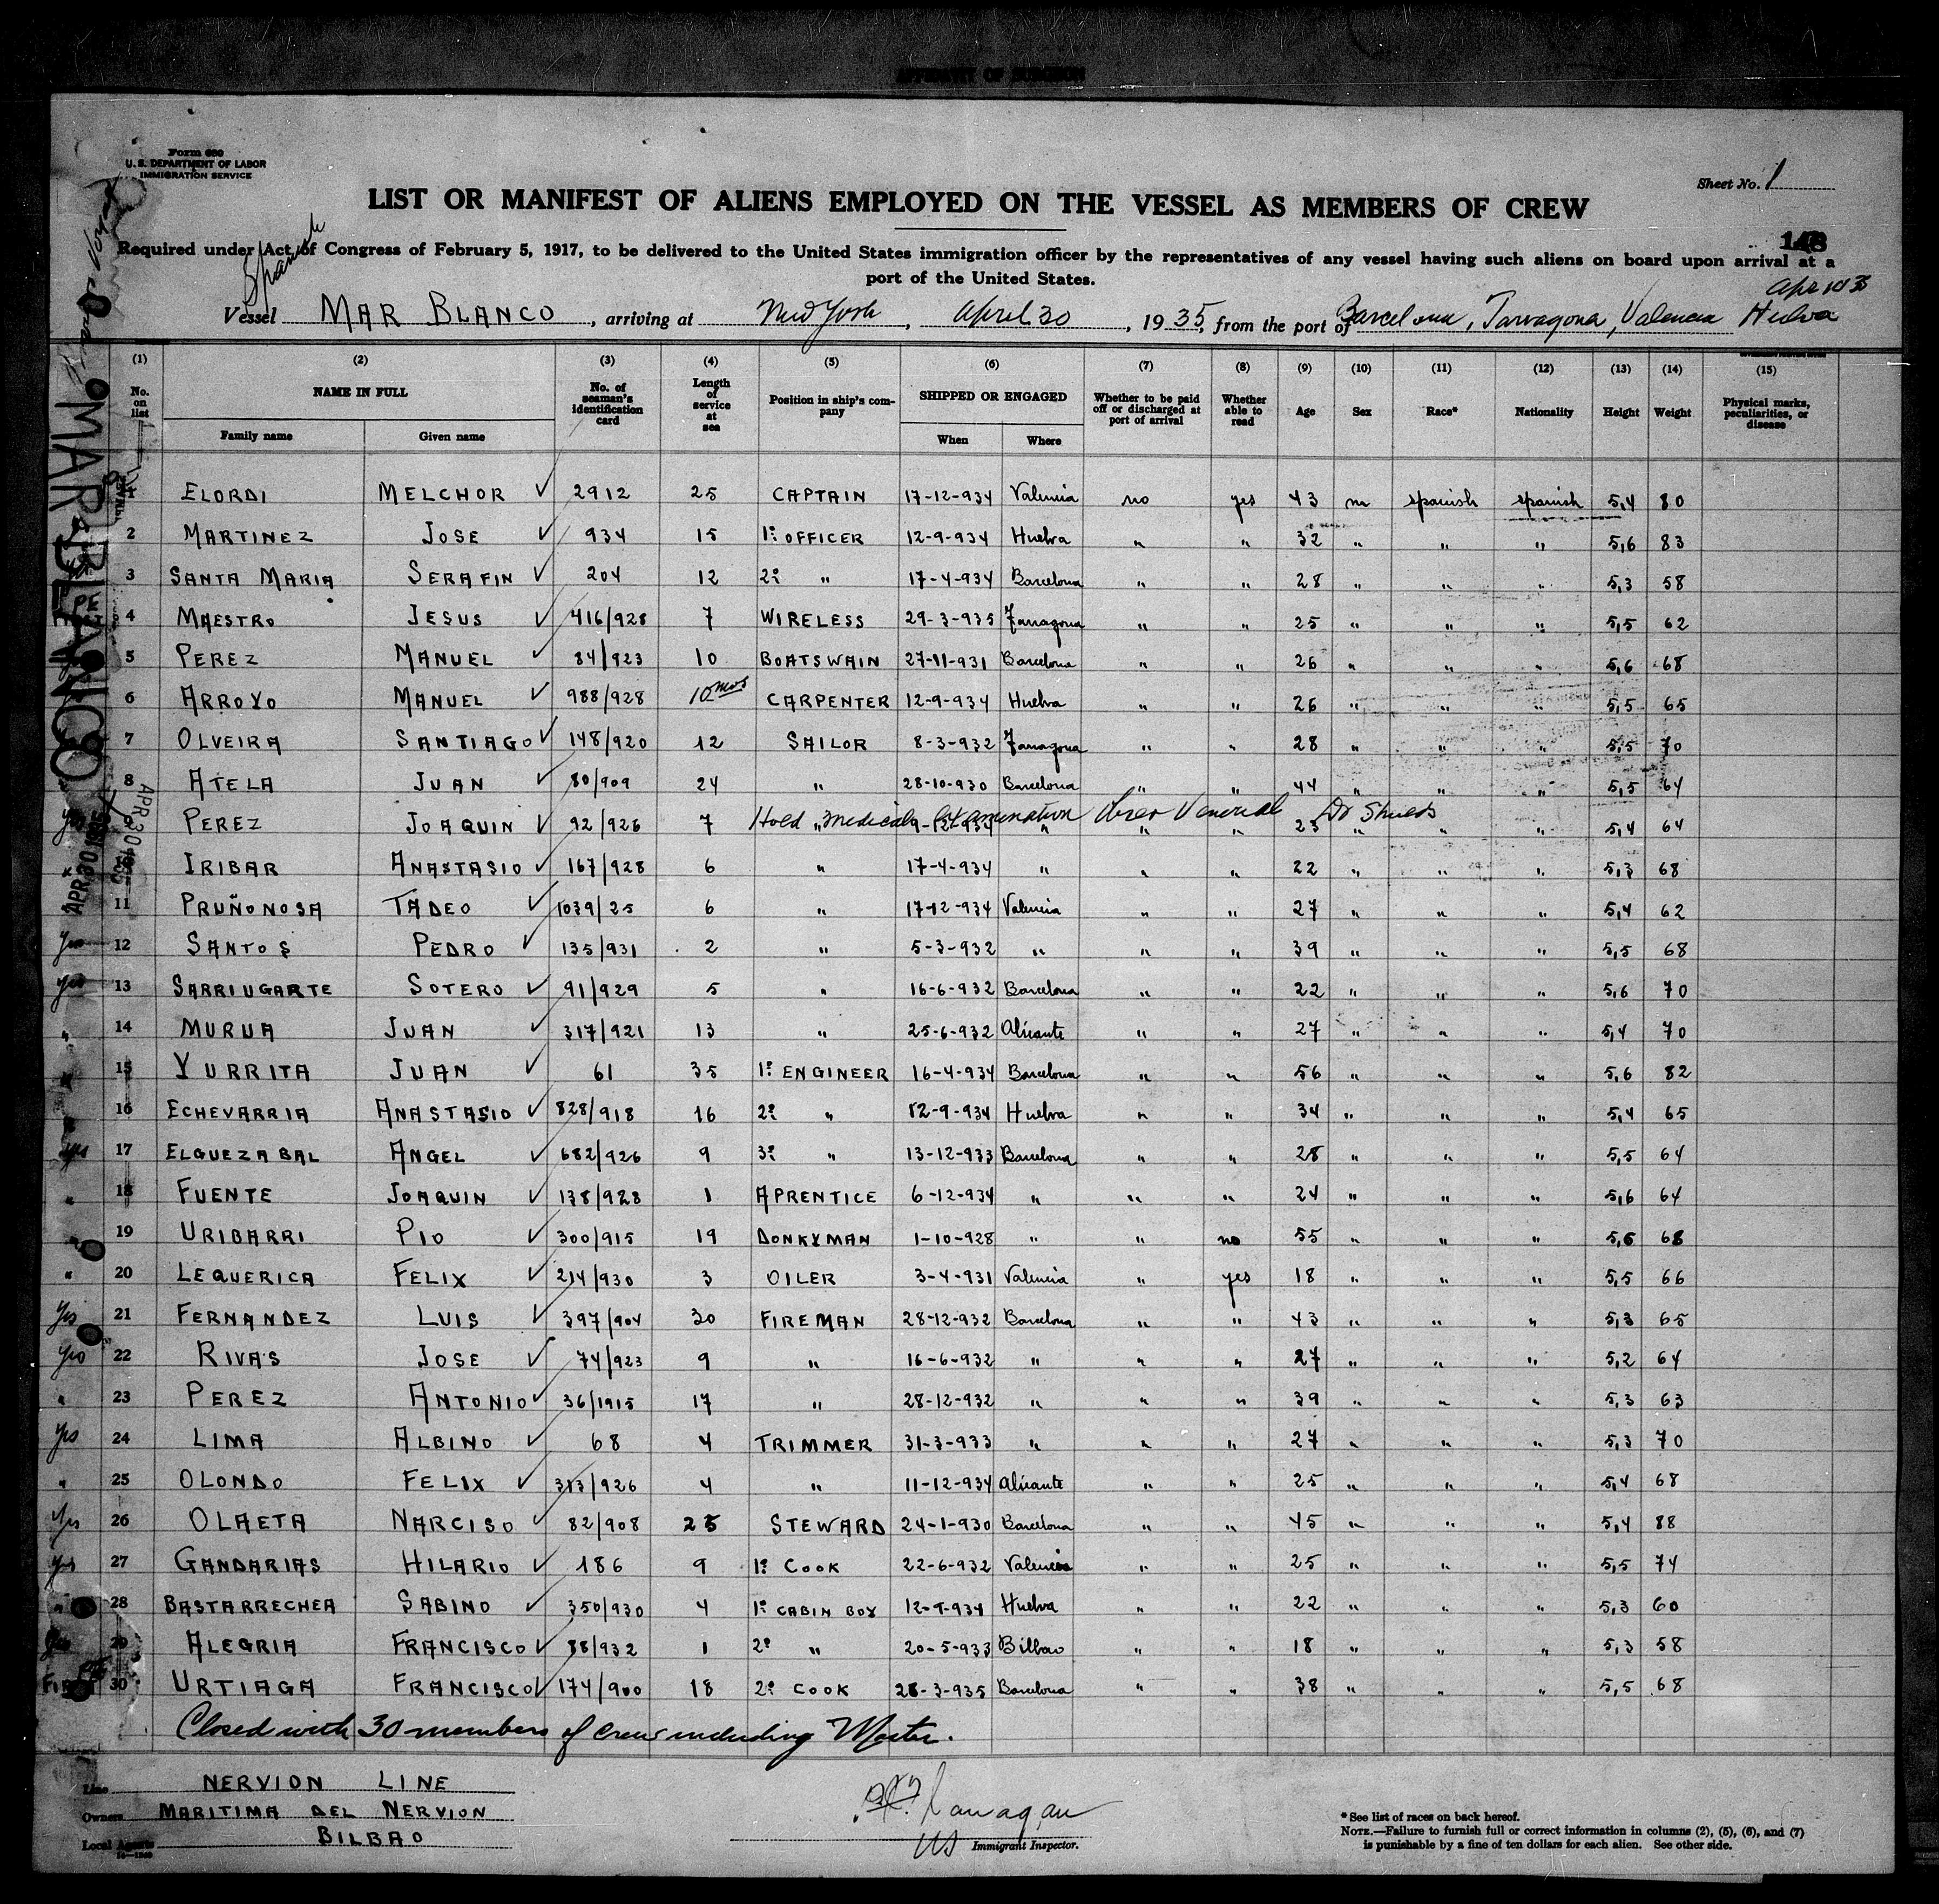 AFFIDAVIT OF SURGEON
Form 680
U. S. DEPARTMENT OF LABOR
IMMIGRATION SERVICE
Sheet No. 1
LIST OR MANIFEST OF ALIENS EMPLOYED ON THE VESSEL AS MEMBERS OF CREW
148
Required under Act of Congress of February 5, 1917, to be delivered to the United States immigration officer by the representatives of any vessel having such aliens on board upon arrival at a
port of the United States.
Spanish
Vessel MAR BLANCO, arriving at New York, April 30, 1935, from the port of Barcelona, Tarragona, Valencia Huelva
(1) (2) (3) (4) (5) (6) (7) (8) (9) (10) (11) (12) (13) (14) (15)
No. on list NAME IN FULL No. of seaman's identification card Length of service at sea Position in ship's company SHIPPED OR ENGAGED Whether to be paid off or discharged at port of arrival Whether able to read Age Sex Race* Nationality Height Weight Physical marks, peculiarities, or disease
Family name Given name When Where
1 ELORDI MELCHOR ✓ 2912 25 CAPTAIN 17-12-934 Valencia no yes 43 m spanish spanish 5,4 80
2 MARTINEZ JOSE ✓ 934 15 1º OFFICER 12-9-934 Huelva " " 32 " " " 5,6 83
3 SANTA MARIA SERAFIN ✓ 204 12 2º " 17-4-934 Barcelona " " 28 " " " 5,3 58
4 MAESTRO JESUS ✓ 416/928 7 WIRELESS 29-3-935 Tarragona " " 25 " " " 5,5 62
5 PEREZ MANUEL ✓ 84/923 10 BOATSWAIN 27-11-931 Barcelona " " 26 " " " 5,6 68
6 ARROYO MANUEL ✓ 988/928 10 mos CARPENTER 12-9-934 Huelva " " 26 " " " 5,5 65
7 OLVEIRA SANTIAGO ✓ 148/920 12 SAILOR 8-3-932 Tarragona " " 28 " " " 5,5 70
8 ATELA JUAN ✓ 80/909 24 " 28-10-930 Barcelona " " 44 " " " 5,5 64
Hold medical examination Venereal Dr Shields
PEREZ JOAQUIN ✓ 92/926 7 " 9-12-934 " " " 23 " " " 5,4 64
IRIBAR ANASTASIO ✓ 167/928 6 " 17-4-934 " " " 22 " " " 5,3 68
11 PRUÑONOSA TADEO ✓ 1039/25 6 " 17-12-934 Valencia " " 27 " " " 5,4 62
Yes 12 SANTOS PEDRO ✓ 135/931 2 " 5-3-932 " " " 39 " " " 5,5 68
yes 13 SARRIUGARTE SOTERO ✓ 91/929 5 " 16-6-932 Barcelona " " 22 " " " 5,6 70
" 14 MURUA JUAN ✓ 317/921 13 " 25-6-932 Alicante " " 27 " " " 5,4 70
" 15 YURRITA JUAN ✓ 61 35 1º ENGINEER 16-4-934 Barcelona " " 56 " " " 5,6 82
" 16 ECHEVARRIA ANASTASIO ✓ 828/918 16 2º " 12-9-934 Huelva " " 34 " " " 5,4 65
yes 17 ELGUEZABAL ANGEL ✓ 682/926 9 3º " 13-12-933 Barcelona " " 28 " " " 5,5 64
" 18 FUENTE JOAQUIN ✓ 138/928 1 APRENTICE 6-12-934 " " " 24 " " " 5,6 64
" 19 URIBARRI PIO ✓ 300/915 19 DONKYMAN 1-10-928 " " no 55 " " " 5,6 68
" 20 LEQUERICA FELIX ✓ 214/930 3 OILER 3-4-931 Valencia " yes 18 " " " 5,5 66
Yes 21 FERNANDEZ LUIS ✓ 397/904 30 FIREMAN 28-12-932 Barcelona " " 43 " " " 5,3 65
Yes 22 RIVAS JOSE ✓ 74/923 9 " 16-6-932 " " " 27 " " " 5,2 64
" 23 PEREZ ANTONIO ✓ 36/1915 17 " 28-12-932 " " " 39 " " " 5,3 63
Yes 24 LIMA ALBINO ✓ 68 4 TRIMMER 31-3-933 " " " 27 " " " 5,3 70
" 25 OLONDO FELIX ✓ 313/926 4 " 11-12-934 Alicante " " 25 " " " 5,4 68
Yes 26 OLAETA NARCISO ✓ 82/908 25 STEWARD 24-1-930 Barcelona " " 45 " " " 5,4 88
Yes 27 GANDARIAS HILARIO ✓ 186 9 1º COOK 22-6-932 Valencia " " 25 " " " 5,5 74
" 28 BASTARRECHEA SABINO ✓ 350/930 4 1º CABIN BOY 12-9-934 Huelva " " 22 " " " 5,3 60
29 ALEGRIA FRANCISCO ✓ 88/932 1 2º " 20-5-933 Bilbao " " 18 " " " 5,3 58
30 URTIAGA FRANCISCO ✓ 174/900 18 2º COOK 28-3-935 Barcelona " " 38 " " " 5,5 68
Closed with 30 members of crew including Master.
Line NERVION LINE
Owners MARITIMA DEL NERVION
Local Agents BILBAO
US Immigrant Inspector.
* See list of races on back hereof.
NOTE.—Failure to furnish full or correct information in columns (2), (5), (6), and (7)
is punishable by a fine of ten dollars for each alien. See other side.
MAR BLANCO
APR 30 1935